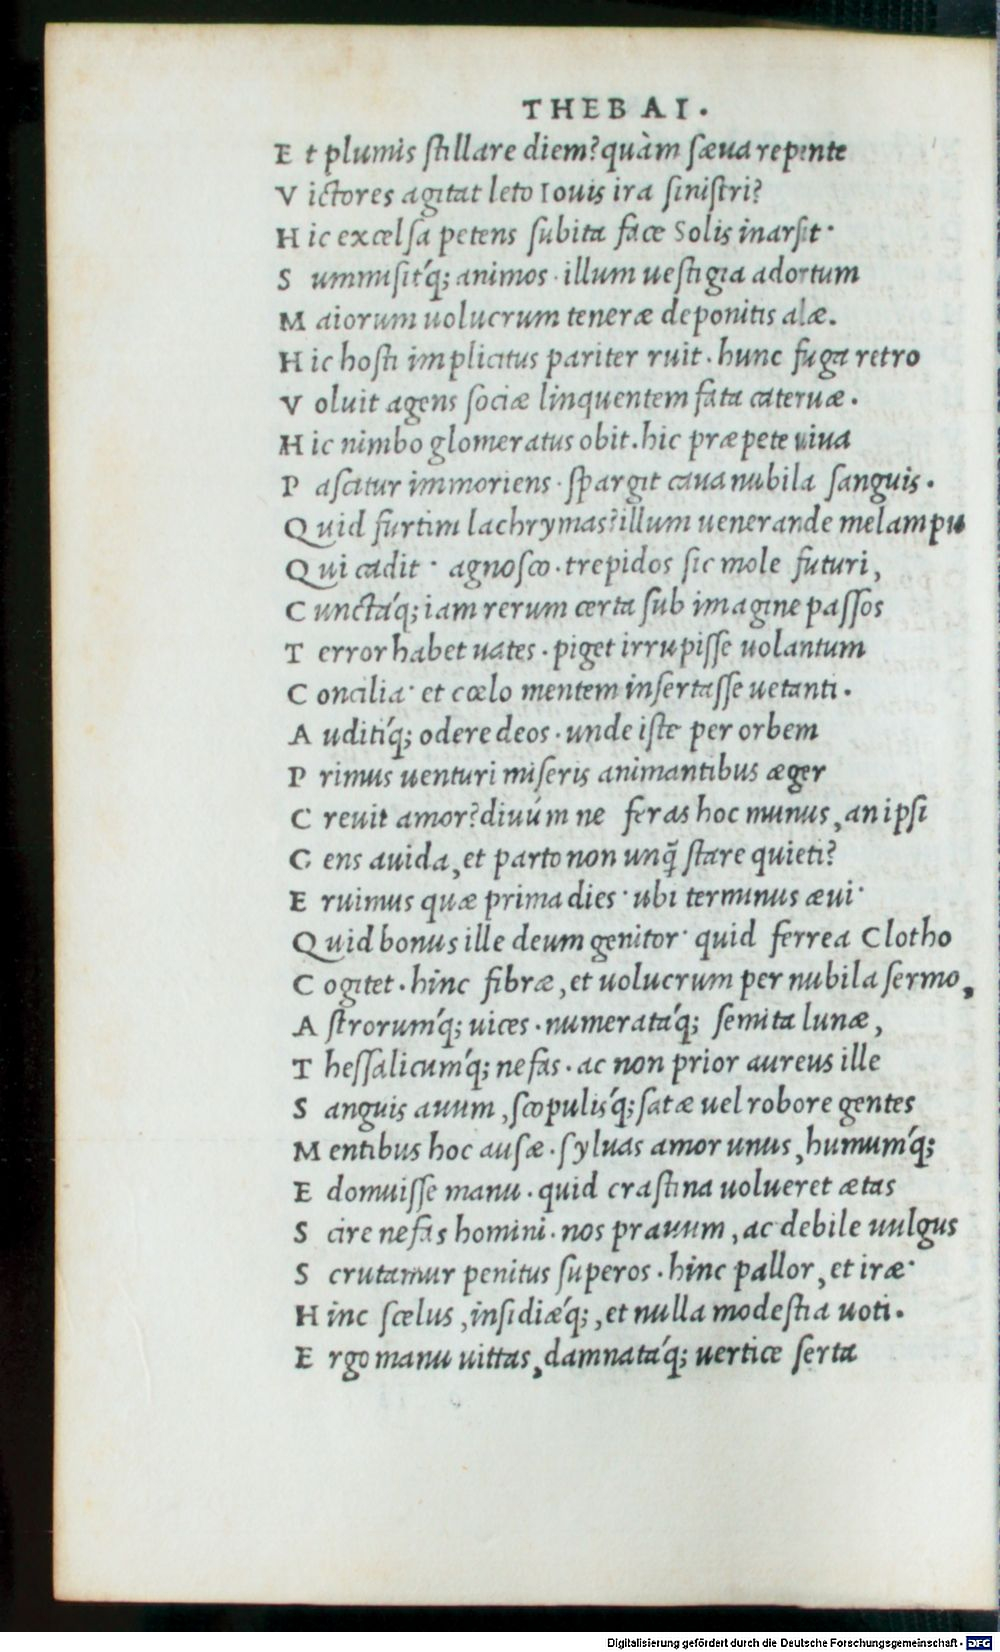 THEBAI.
Et plumis stillare diem? quàm sæua repente
Victores agitat leto Iouis ira sinistri?
Hic excelsa petens subita face Solis inarsit·
Summisit'q; animos· illum uestigia adortum
Maiorum uolucrum teneræ deponitis alæ.
Hic hosti implicitus pariter ruit. hunc fuga retro
Voluit agens sociæ linquentem fata cateruæ.
Hic nimbo glomeratus obit. hic præpete uiua
Pascitur immoriens· spargit caua nubila sanguis.
Quid furtim lachrymas? illum uenerande melampu
Qui cadit· agnosco. trepidos sic mole futuri,
Cunctá'q; iam rerum certa sub imagine passos
Terror habet uates. piget irrupisse uolantum
Concilia· et cœlo mentem insertasse uetanti.
Auditi'q; odere deos. unde iste per orbem
Primus uenturi miseris animantibus æger
Creuit amor? diuúm ne feras hoc munus, an ipsi
Gens auida, et parto non unq̃ stare quieti?
Eruimus quæ prima dies· ubi terminus æui·
Quid bonus ille deum genitor· quid ferrea Clotho
Cogitet. hinc fibræ, et uolucrum per nubila sermo,
Astrorum'q; uices. numeratá'q; semita lunæ,
Thessalicum'q; nefas. ac non prior aureus ille
Sanguis auum, scopulis'q; satæ uel robore gentes
Mentibus hoc ausæ. syluas amor unus, humum'q;
Edomuisse manu. quid crastina uolueret ætas
Scire nefas homini. nos prauum, ac debile uulgus
Scrutamur penitus superos. hinc pallor, et iræ·
Hinc scelus, insidiæ'q;, et nulla modestia uoti.
Ergo manu uittas, damnatá'q; uertice serta
Digitalisierung gefördert durch die Deutsche Forschungsgemeinschaft - DFG